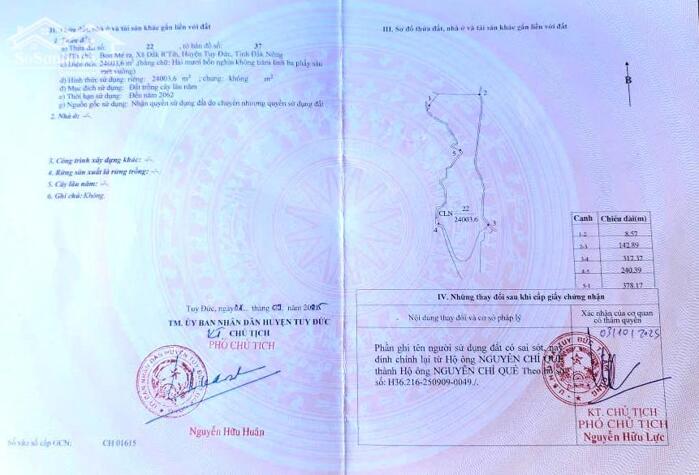 II. Thửa đất, nhà ở và tài sản khác gắn liền với đất
1. Thửa đất:
a) Thửa đất số: 22 , tờ bản đồ số: 37
b) Địa chỉ: Bon Mê ra, Xã Đắk R'Tih, Huyện Tuy Đức, Tỉnh Đắk Nông
c) Diện tích: 24003,6 m² (bằng chữ: Hai mươi bốn nghìn không trăm linh ba phẩy sáu
mét vuông)
d) Hình thức sử dụng: riêng: 24003,6 m²; chung: không m²
đ) Mục đích sử dụng: Đất trồng cây lâu năm
e) Thời hạn sử dụng: Đến năm 2062
g) Nguồn gốc sử dụng: Nhận quyền sử dụng đất do chuyển nhượng quyền sử dụng đất
2. Nhà ở: -/-
3. Công trình xây dựng khác: -/-
4. Rừng sản xuất là rừng trồng: -/-
5. Cây lâu năm: -/-
6. Ghi chú: Không.
Tuy Đức, ngày tháng
TM. ỦY BAN NHÂN DÂN HUYỆN TUY ĐỨC
KT CHỦ TỊCH
PHÓ CHỦ TỊCH
Nguyễn Hữu Huân
Số vào sổ cấp GCN: CH 01615
III. Sơ đồ thửa đất, nhà ở và tài sản khác gắn liền với đất
B
1
2
5
CLN 22
24003,6
4
3
Cạnh Chiều dài(m)
1-2 8.57
2-3 142.89
3-4 312.37
4-5 240.39
5-1 378.17
IV. Những thay đổi sau khi cấp giấy chứng nhận
Nội dung thay đổi và cơ sở pháp lý
Xác nhận của cơ quan
có thẩm quyền
03/10/2025
Phần ghi tên người sử dụng đất có sai sót, nay
đính chính lại từ Hộ ông NGUYỄN CHÍ QUẾ
thành Hộ ông NGUYỄN CHÍ QUÊ Theo hồ sơ
số: H36.216-250909-0049./.
KT. CHỦ TỊCH
PHÓ CHỦ TỊCH
Nguyễn Hữu Lực